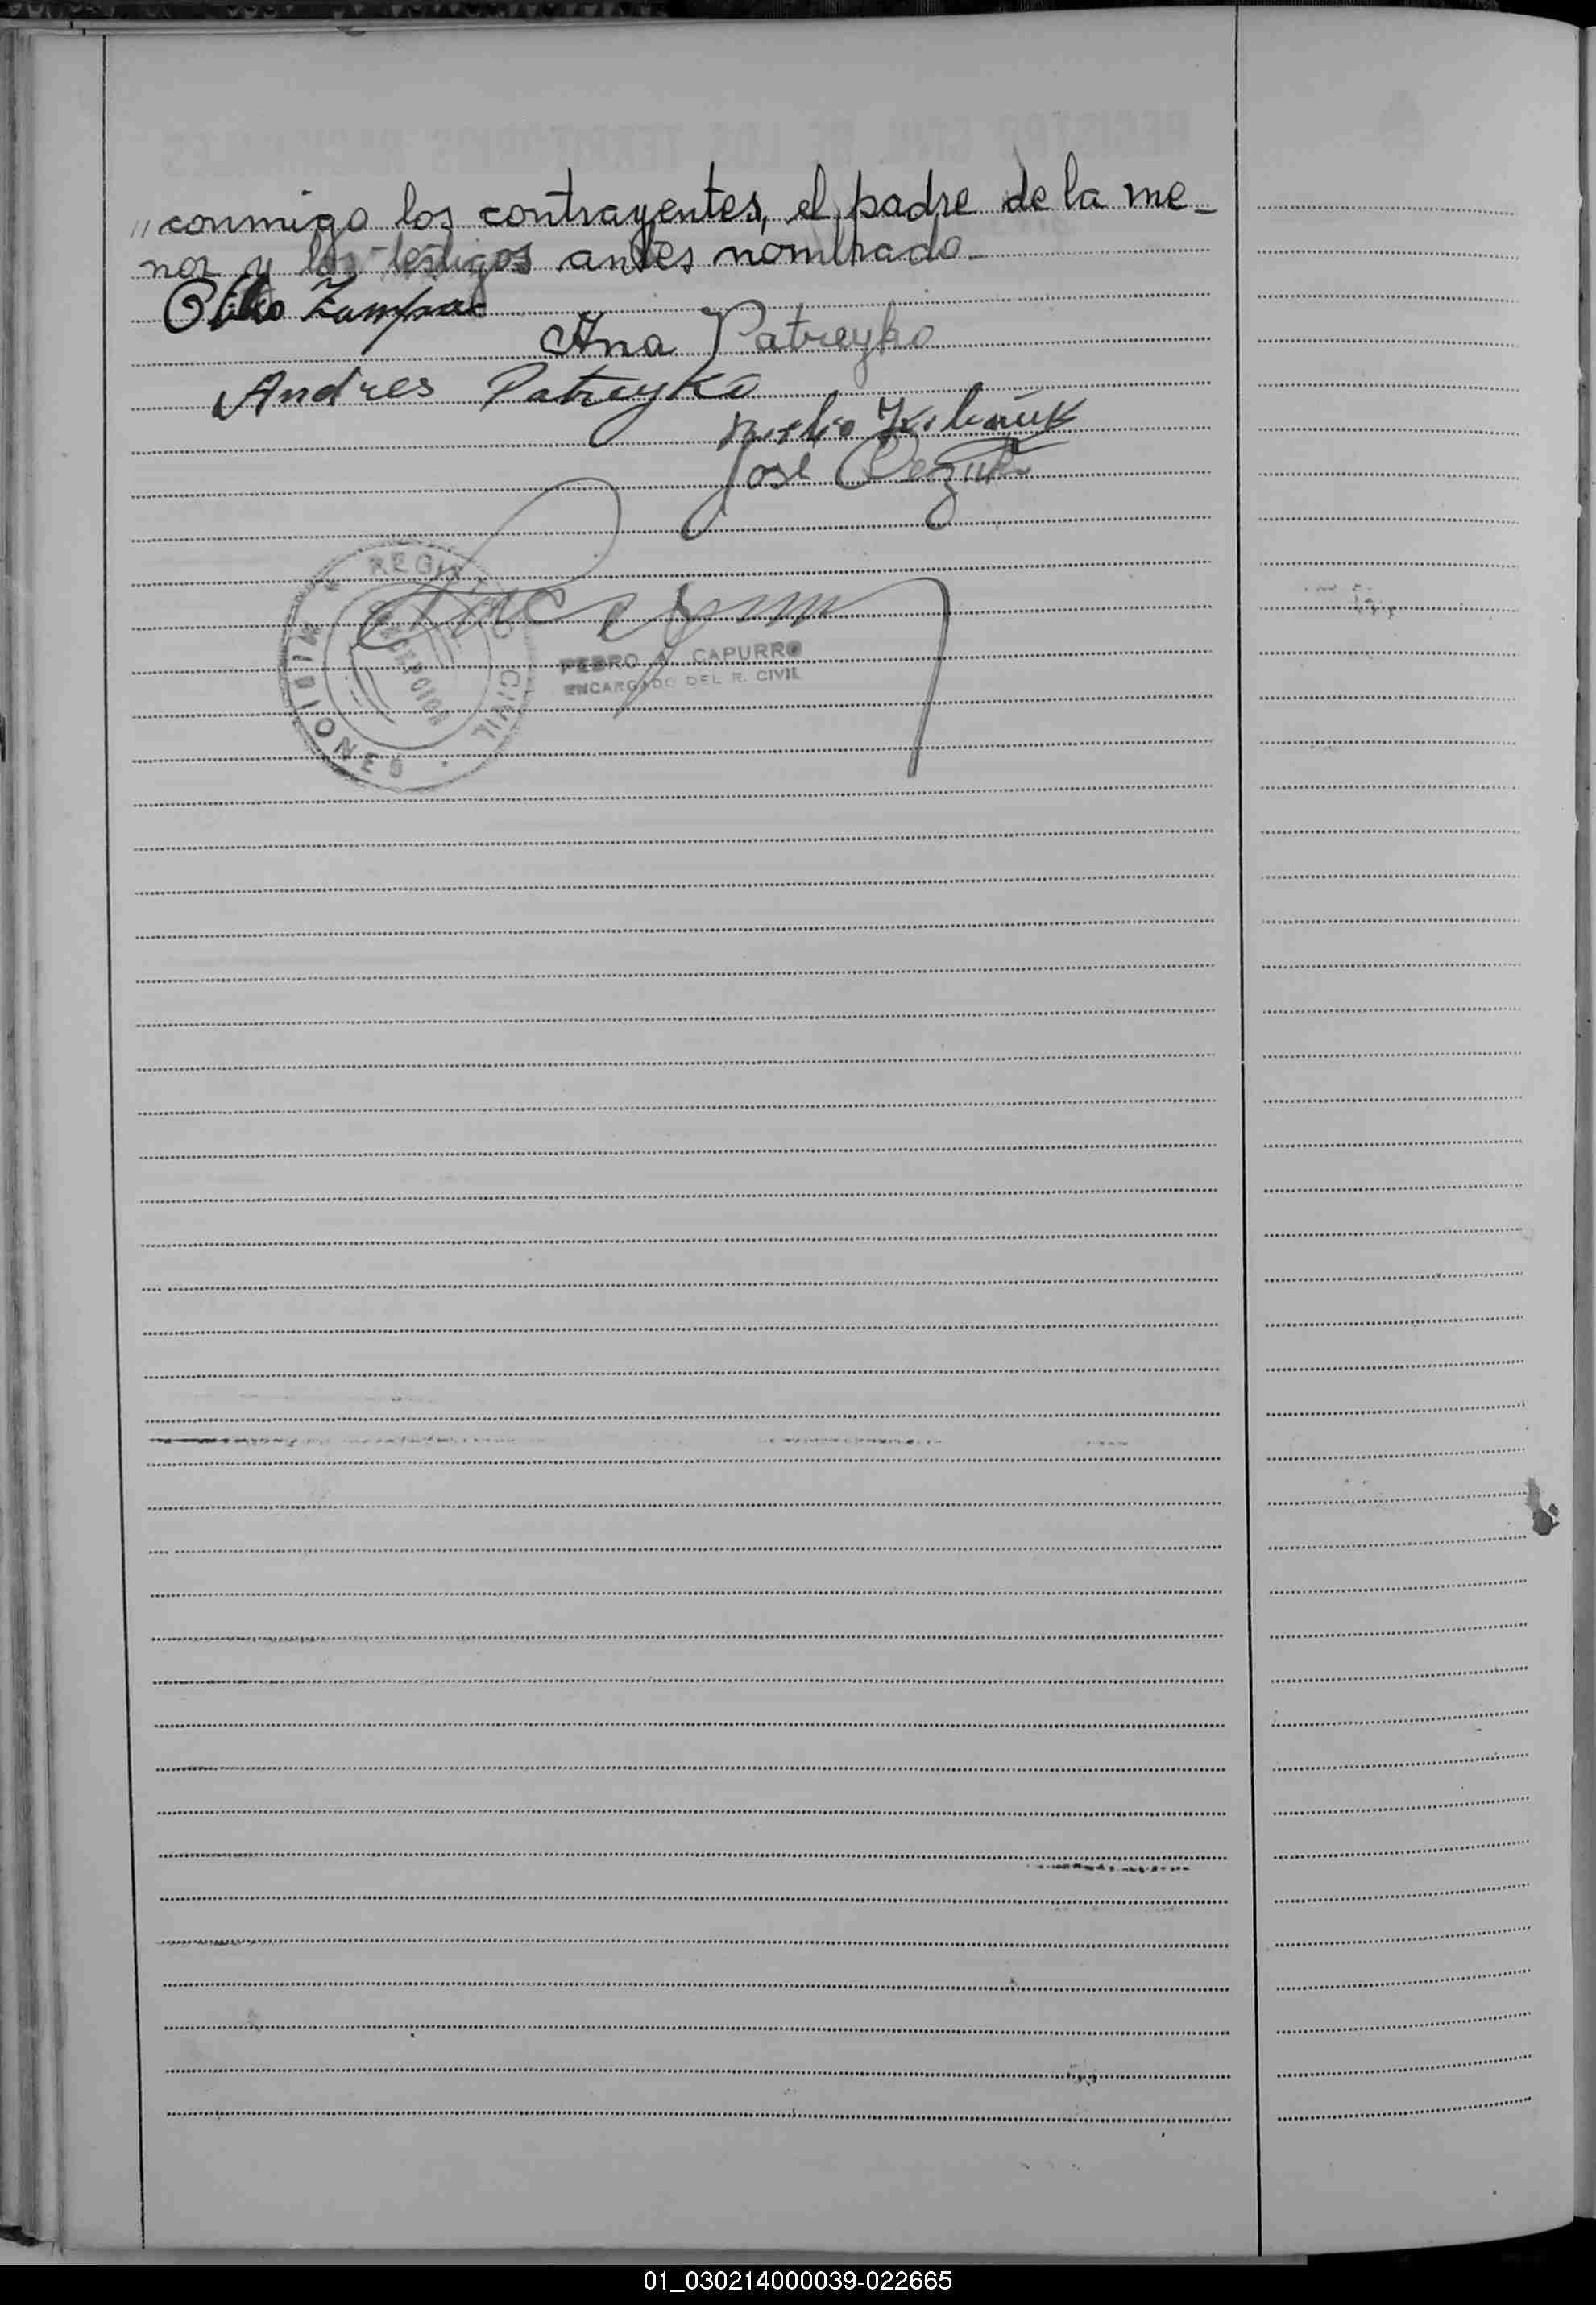 "conmigo los contrayentes, el padre de la me-
nor y los testigos antes nombrado.-
Ana Patreyko
Andres Patreyko
José
REGISTRO CIVIL
MISIONES
CONCEPCION
PEDRO A. CAPURRO
ENCARGADO DEL R. CIVIL
01_030214000039-022665